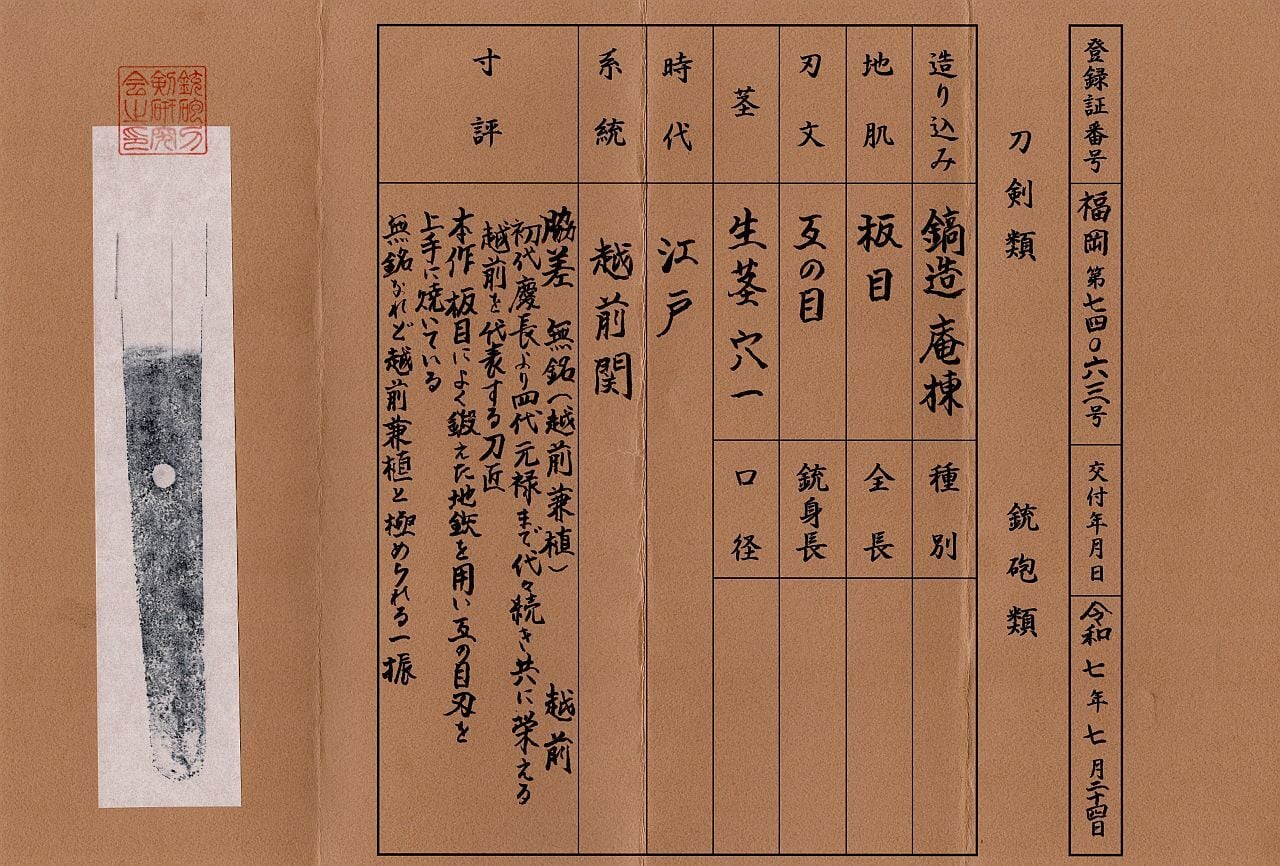 登録証番号
福岡第七四〇六三号
交付年月日
令和七年七月二十四日
刀剣類
銃砲類
造り込み
鎬造庵棟
種別
地肌
板目
全長
刃文
互の目
銃身長
茎
生茎穴一
口径
時代
江戸
系統
越前関
寸評
脇差 無銘(越前兼植) 越前
初代慶長より四代元禄まで代々続き共に栄える
越前を代表する刀匠
本作板目によく鍛えた地鉄を用い互の目刃を
上手に焼いている
無銘なれど越前兼植と極められる一振
銃砲刀
剣研究
会之印